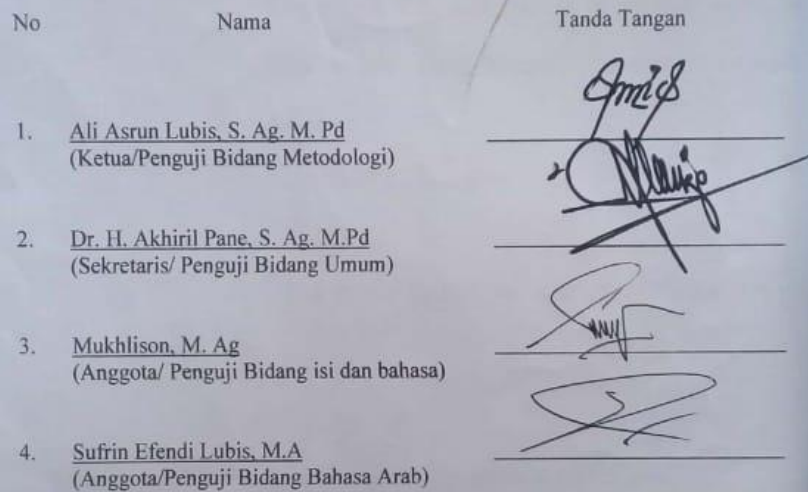 No Nama Tanda Tangan
1. Ali Asrun Lubis, S. Ag. M. Pd
(Ketua/Penguji Bidang Metodologi)
2. Dr. H. Akhiril Pane, S. Ag. M.Pd
(Sekretaris/ Penguji Bidang Umum)
3. Mukhlison, M. Ag
(Anggota/ Penguji Bidang isi dan bahasa)
4. Sufrin Efendi Lubis, M.A
(Anggota/Penguji Bidang Bahasa Arab)